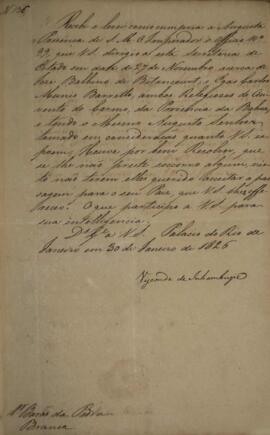 Recebi e levei com summa a Augusta
Presença de S. M. O Imperador o Officio Nº
99, que VS. dirigio a esta Secretaria de
Estado em data de 27 de Novembro acerca de
José Balbino de Betancourt, e Egas Carlos
Munis Barretto, ambos Religiosos do Con-
vento do Carmo, da Provincia da Bahia,
e tendo o Mesmo Augusto Senhor
tomado em consideração quanto VS. ex-
poem, Houve por bem Resolver, que
se lhe não preste socorro algum, vis-
to não terem elles querido aceitar a pas-
sagem para o seu Paiz, que VS. lhes offe-
receo. O que participo a VS. para
sua intelligencia.
Ds. Gde. a VS. Palacio do Rio de
Janeiro em 30 de Janeiro de 1826
Visconde de Inhambupe
Sr. Barão da Pedra
Branca